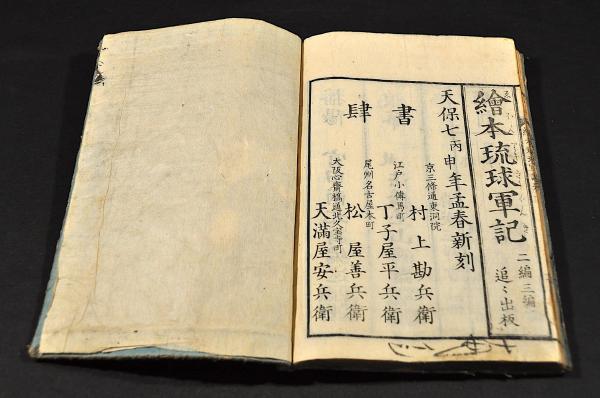 繪本琉球軍記
二編三編
追々出板
天保七丙申年孟春新刻
書肆
京三條通東洞院
村上勘兵衛
江戸小傳馬町
丁子屋平兵衛
尾州名古屋本町
松屋善兵衛
大阪心齋橋通北久宝寺町
天満屋安兵衛